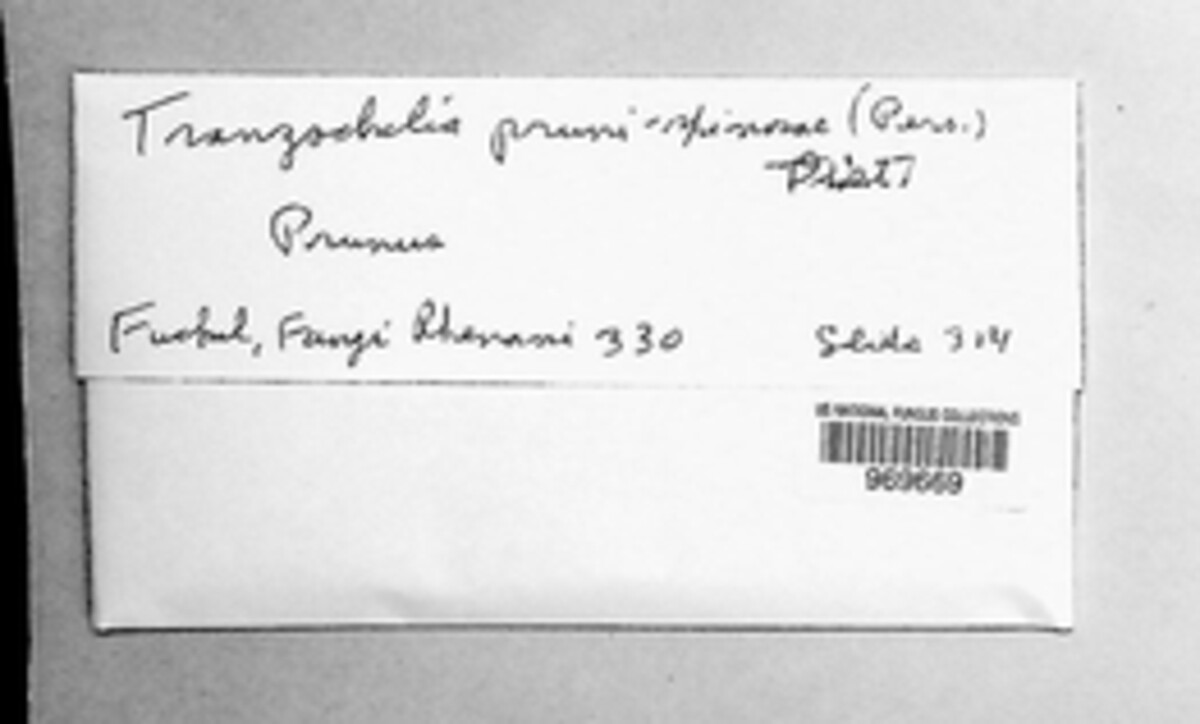 Tranzschelia pruni-spinosae (Pers.)
Diet
Prunus
Fuckel, Fungi Rhenani 330
Slide 314
US NATIONAL FUNGUS COLLECTIONS
969669